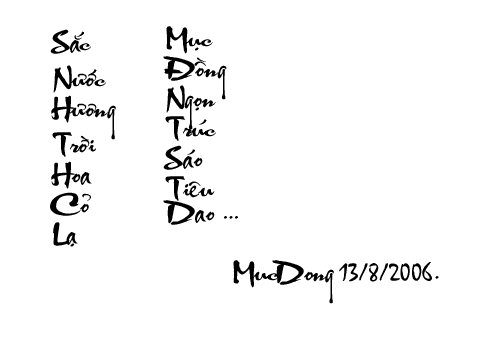 Sắc
Nước
Hương
Trời
Hoa
Cỏ
Lạ
Mục
Đồng
Ngọn
Trúc
Sáo
Tiêu
Dao ...
MucDong 13/8/2006.